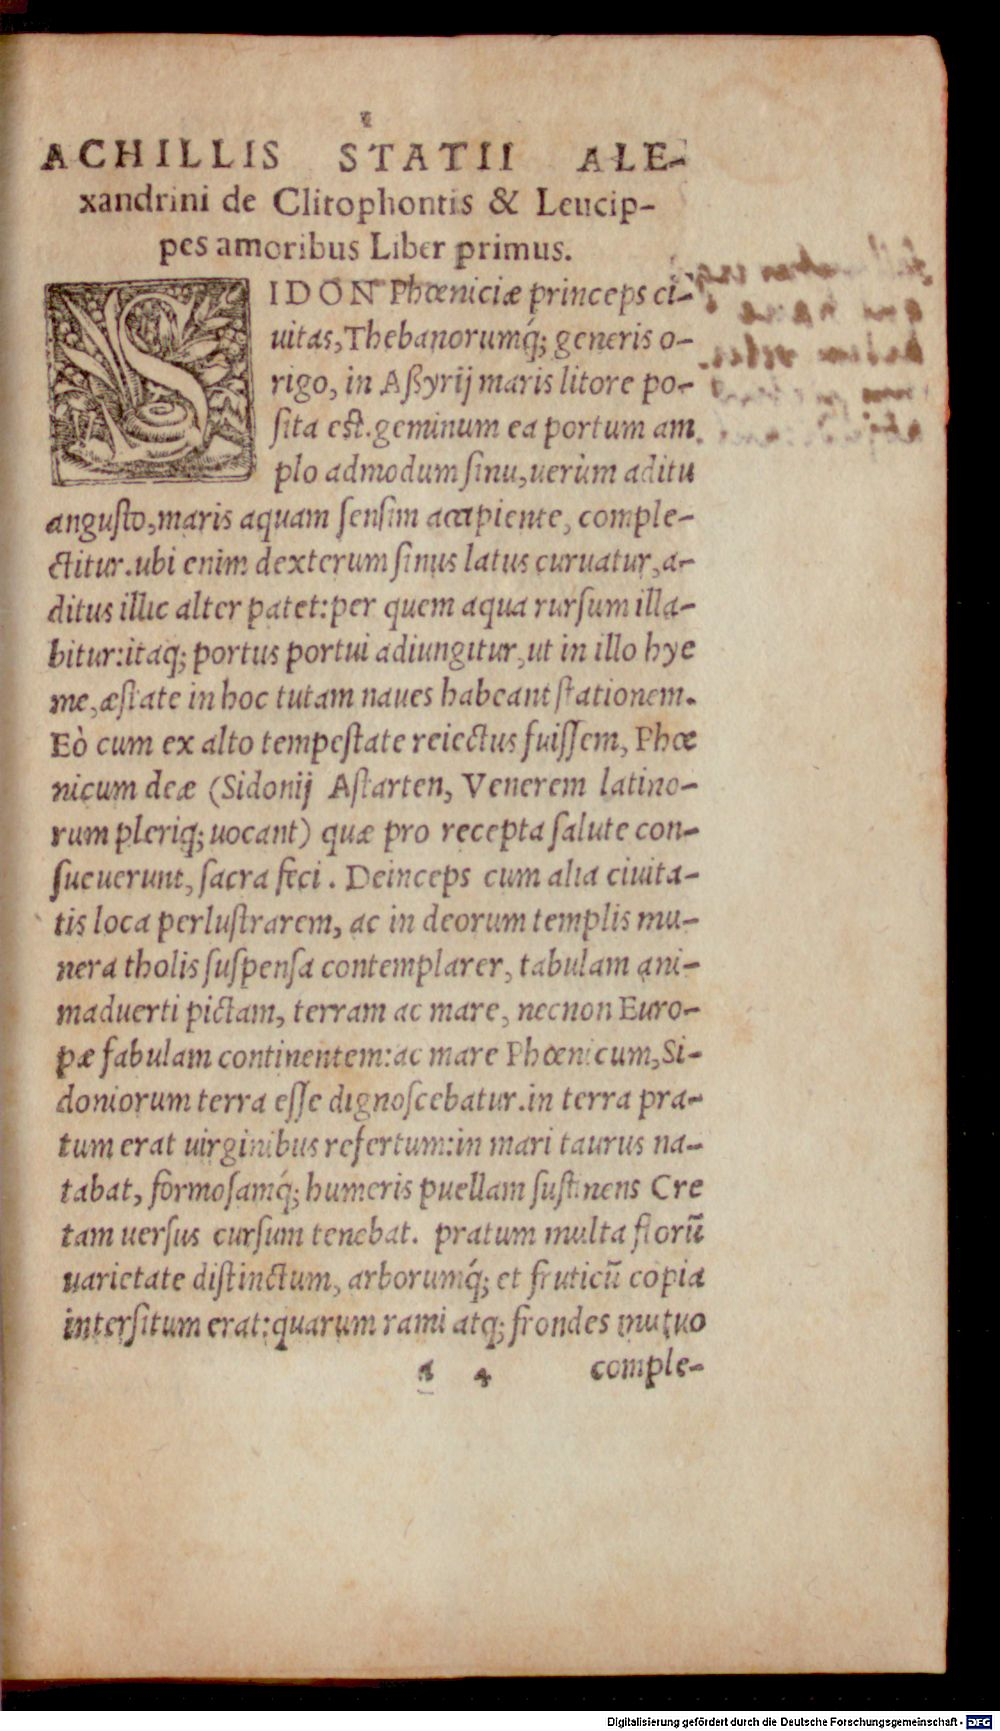 ACHILLIS STATII ALE-
xandrini de Clitophontis & Leucip-
pes amoribus Liber primus.
SIDON Phœniciæ princeps ci-
uitas, Thebanorumq́; generis o-
rigo, in Aßyrij maris litore po-
ſita est. geminum ea portum am
plo admodum ſinu, uerùm aditu
anguſto, maris aquam ſenſim accipiente, comple-
ctitur. ubi enim dexterum ſinus latus curuatur, a-
ditus illic alter patet: per quem aqua rurſum illa-
bitur: itaq; portus portui adiungitur, ut in illo hye
me, æſtate in hoc tutam naues habeant ſtationem.
Eò cum ex alto tempeſtate reiectus fuiſſem, Phœ
nicum deæ (Sidonij Aſtarten, Venerem latino-
rum pleriq; uocant) quæ pro recepta ſalute con-
ſueuerunt, ſacra feci. Deinceps cum alia ciuita-
tis loca perluſtrarem, ac in deorum templis mu-
nera tholis ſuſpenſa contemplarer, tabulam ani-
maduerti pictam, terram ac mare, necnon Euro-
pæ fabulam continentem: ac mare Phœnicum, Si-
doniorum terra eſſe dignoſcebatur. in terra pra-
tum erat uirginibus refertum: in mari taurus na-
tabat, formoſamq́; humeris puellam ſuſtinens Cre
tam uerſus curſum tenebat. pratum multa florū
uarietate diſtinctum, arborumq́; et fruticū copia
interſitum erat: quarum rami atq; frondes mutuo
a 4 comple-
Digitalisierung gefördert durch die Deutsche Forschungsgemeinschaft - DFG